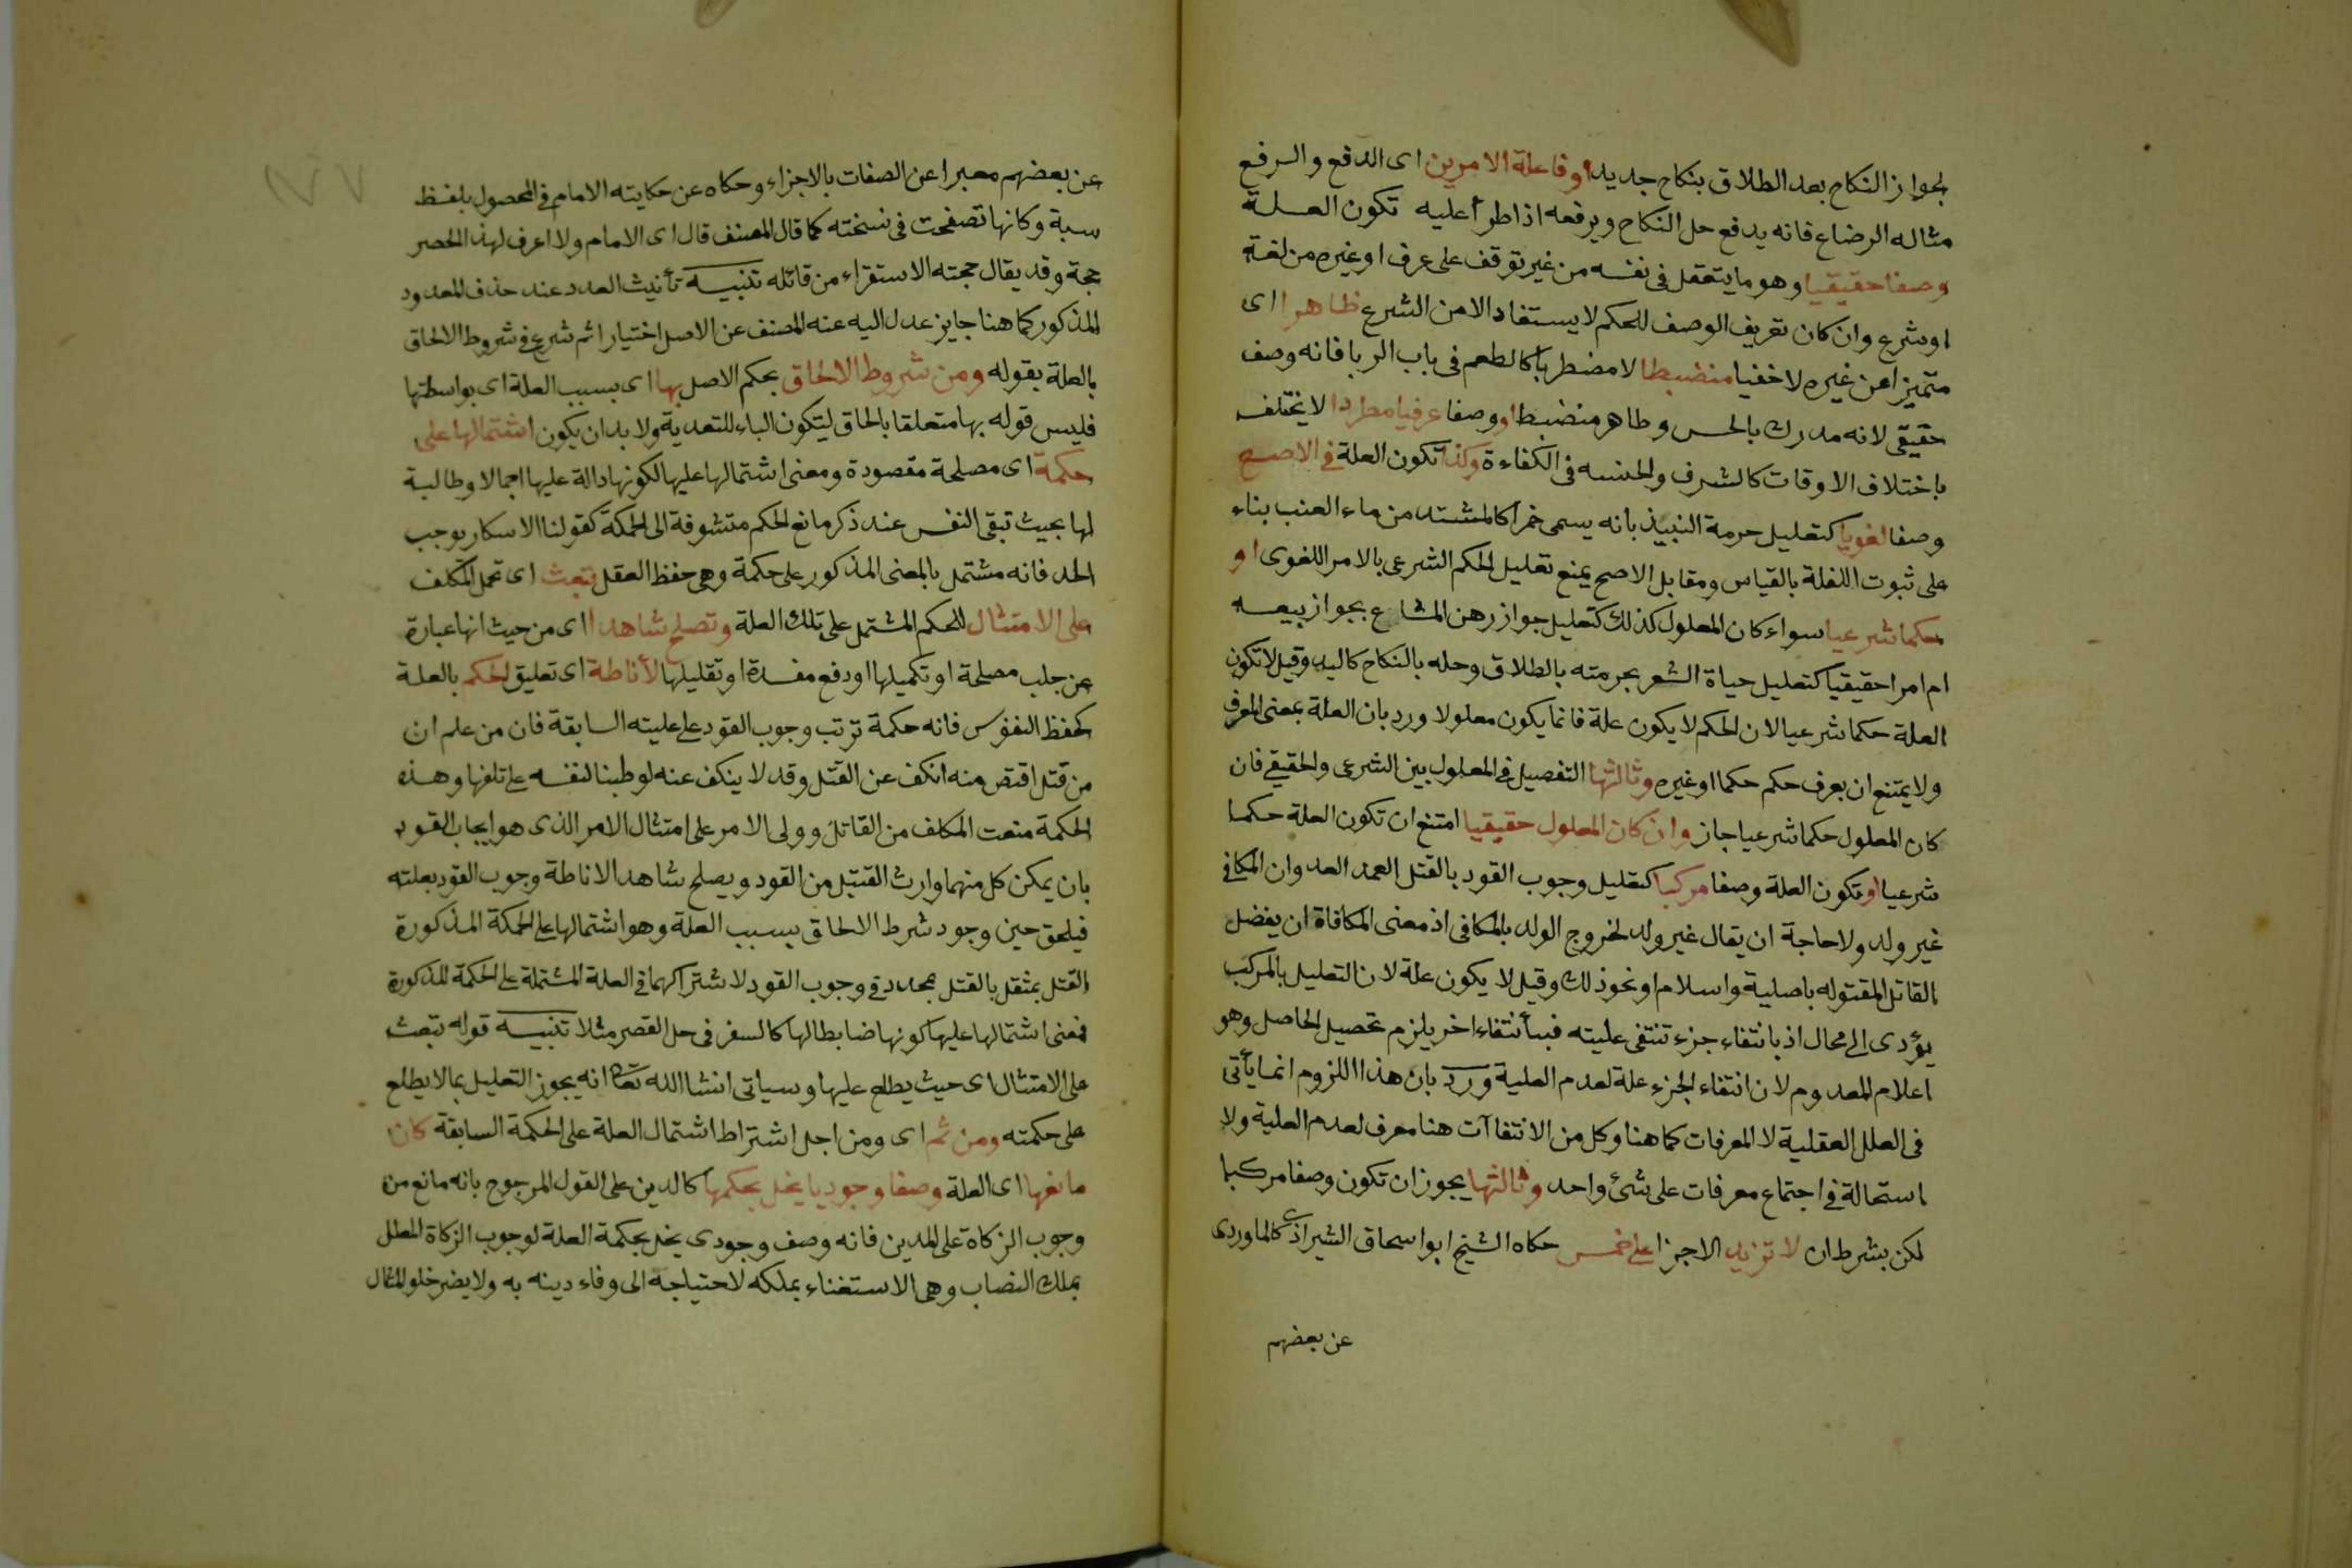 لجواز النكاح بعد الطلاق بنكاح جديد او فاعلة الامرين اى الدفع والرفع
مثاله الرضاع فانه يدفع حل النكاح ويرفعه اذا طرأ عليه تكون العلة
وصفا حقيقيا وهو ما يتعقل فى نفسه من غير توقف على عرف او غيره من لغة
او شرع وان كان تعريف الوصف للحكم لا يستفاد الا من الشرع ظاهرا اى
متميزا عن غيره لا خفيا منضبطا لا مضطربا كالطعم فى باب الربا فانه وصف
حقيقى لانه مدرك بالحس وظاهر منضبط او وصفا عرفيا مطردا لا يختلف
باختلاف الاوقات كالشرف والخسه فى الكفاءة وكذا تكون العلة فى الاصح
وصفا لغويا كتعليل حرمة النبيذ بانه يسمى خمرا كالمشتد من ماء العنب بناء
على ثبوت اللغلة بالقياس ومقابل الاصح يمنع تعليل الحكم الشرعى بالامر اللغوى او
حكما شرعيا سواء كان المعلول كذلك كتعليل جواز رهن المشاع بجواز بيعه
ام امرا حقيقيا كتعليل حياة الشعر بحرمته بالطلاق وحله بالنكاح كاليد وقيل لا تكون
العلة حكما شرعيا لان الحكم لا يكون علة فانما يكون معلولا ورد بان العلة بمعنى المعرف
ولا يمتنع ان يعرف حكم حكما او غيره وثالثها التفصيل فى المعلول بين الشرعى والحقيقى فان
كان المعلول حكما شرعيا جاز وان كان المعلول حقيقيا امتنع ان تكون العلة حكما
شرعيا او تكون العلة وصفا مركبا كتعليل وجوب القود بالقتل العمد العدوان المكافى
غير ولد ولا حاجة ان يقال غير ولد لخروج الولد بالمكافى اذ معنى المكافاة ان يفضل
القاتل المقتوله باصلية واسلام او نحو ذلك وقيل لا يكون علة لان التعليل بالمركب
يؤدى الى محال اذ بانتفاء جزء تنتفى عليته فبأنتفاء اخر يلزم تحصيل الحاصل وهو
اعلام المعدوم لان انتفاء الجزء علة لعدم العلية ورد بان هذا اللزوم انما يأتى
فى العلل العقلية لا المعرفات كما هنا وكل من الانتفاآت هنا معرف لعدم العلية ولا
استحالة فى اجتماع معرفات على شئ واحد وثالثها يجوز ان تكون وصفا مركبا
لكن بشرط ان لا تزيد الاجزا على خمس حكاه الشيخ ابو اسحاق الشيرازى كالماوردى
عن بعضهم
عن بعضهم معبرا عن الصفات بالاجزاء وحكاه عن حكايته الامام فى المحصول بلفظ
سبة وكانها تصفحت فى نسخته كما قال المصنف قال اى الامام ولا اعرف لهذ الحصر
حجة وقد يقال حجته الاستقراء من قائله تنبيه تأنيث العدد عند حذف المعدود
المذكور كما هنا جايز عدل اليه عنه المصنف عن الاصل اختيارا ثم شرع فى شروط الالحاق
بالعلة بقوله ومن شروط الالحاق بحكم الاصل بها اى بسبب العلة اى بواسطتها
فليس قوله بها متعلقا بالحاق ليتكون الباء للتعدية ولا بد ان يكون اشتمالها على
حكمة اى مصلحة مقصودة ومعنى اشتمالها عليها لكونها دالة عليها اجمالا وطالبة
لها بحيث تبقى النفس عند ذكر مانع الحكم متشوفة الى الحمكة كقولنا الاسكار يوجب
الحد فانه مشتمل بالمعنى المذكور على حكمة وهى حفظ العقل تبعث اى تحمل المكلف
على الامتثال للحكم المشتمل على تلك العلة وتصلح شاهدا اى من حيث انها عبارة
عن جلب مصلحة او تكميلها او دفع مفسدة او تقليلها لأناطة اى تعليق الحكم بالعلة
كحفظ النفوس فانه حكمة ترتب وجوب القود على عليته السابقة فان من علم ان
من قتل اقتص منه انكف عن القتل وقد لا ينكف عنه لوطينا لنفسه على تلفها وهذه
الحكمة منعت المكلف من القاتل وولى الامر على امتثال الامر الذى هو ايجاب القود
بان يمكن كل منهما وارث القتيل من القود ويصلح شاهد الاناطة وجوب القود بعلته
فيلحق حين وجود شرط الالحاق بسبب العلة وهو اشتمالها على الحمكة المذكورة
القتل بمثقل بالقتل بمحدد فى وجوب القود لاشتراكهما فى العلة المشتملة على الحكمة المذكورة
فمعنى اشتمالها عليها كونها ضابطا لها كالسفر فى حل القصر مثلا تنبيه قوله تبعث
على الامتثال اى حيث يطلع عليها وسياتى انشا الله تعا انه يجوز التعليل بما لا يطلع
على حكمته ومن ثم اى ومن اجل اشتراط اشتمال العلة على الحكمة السابقة كان
مانعها اى العلة وصفا وجوديا يخل بحكمها كالدين على القول المرجوح بانه مانع من
وجوب الزكاة على المدين فانه وصف وجودى يخل بحكمة العلة لوجوب الزكاة المعلل
بملك النصاب وهى الاستغناء بملكه لاحتياجه الى وفاء دينه به ولا يضر خلو المثال